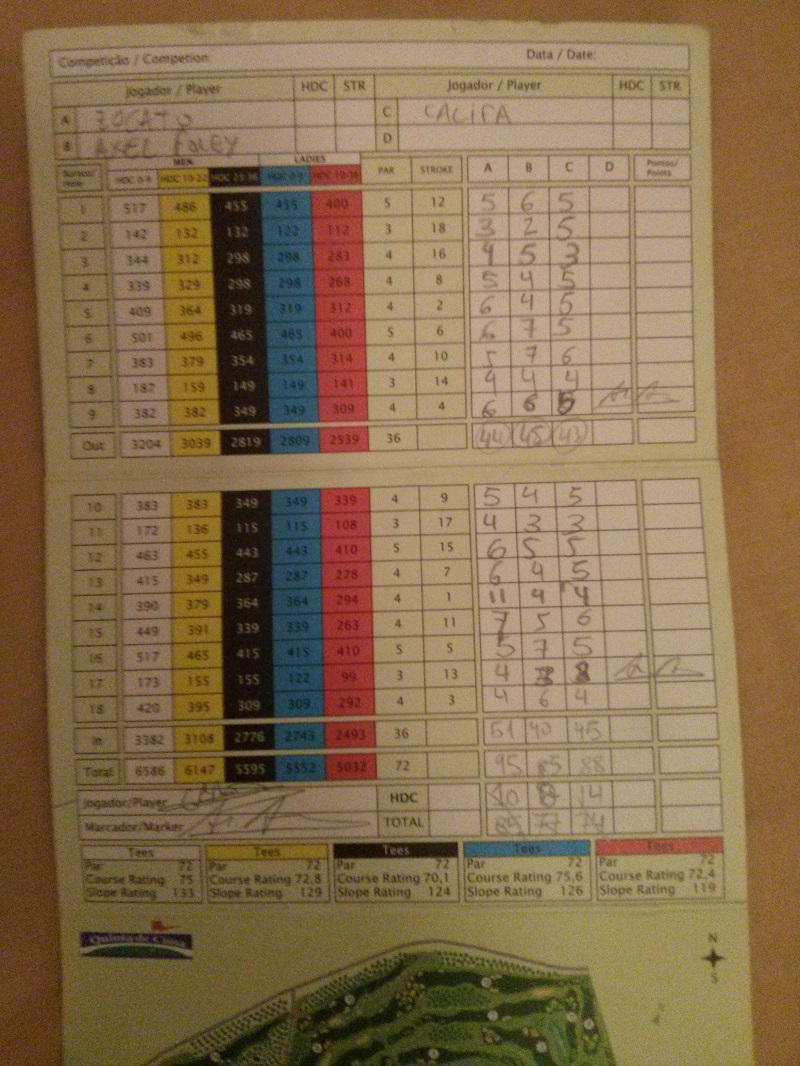 Competição / Competion: Data / Date:
Jogador / Player HDC STR Jogador / Player HDC STR
A ZOCATO C CALIFA
B AXEL FOLEY D
MEN LADIES
Hole HDC 0-9 HDC 10-22 HDC 23-36 HDC 0-9 HDC 10-36 PAR STROKE A B C D Pontos/ Points
1 517 486 455 455 400 5 12 5 6 5
2 142 132 132 122 112 3 18 3 2 5
3 344 312 298 298 283 4 16 4 5 3
4 339 329 298 298 268 4 8 5 4 5
5 409 364 319 319 312 4 2 6 4 5
6 501 496 465 465 400 5 6 6 7 5
7 383 379 354 354 314 4 10 5 7 6
8 187 159 149 149 141 3 14 4 4 4
9 382 382 349 349 309 4 4 6 6 5
Out 3204 3039 2819 2809 2539 36 44 45 43
10 383 383 349 349 339 4 9 5 4 5
11 172 136 115 115 108 3 17 4 3 3
12 463 455 443 443 410 5 15 6 5 5
13 415 349 287 287 278 4 7 6 4 5
14 390 379 364 364 294 4 1 11 4 4
15 449 391 339 339 263 4 11 7 5 6
16 517 465 415 415 410 5 5 5 7 5
17 173 155 155 122 99 3 13 4
18 420 395 309 309 292 4 3 4 6 4
In 3382 3108 2776 2743 2493 36 51 40 45
Total 6586 6147 5595 5552 5032 72 95 85 88
Jogador/Player HDC 10 14
Marcador/Marker TOTAL 85 77 74
Tees Tees Tees Tees Tees
Par 72 Par 72 Par 72 Par 72 Par 72
Course Rating 75 Course Rating 72,8 Course Rating 70,1 Course Rating 75,6 Course Rating 72,4
Slope Rating 133 Slope Rating 129 Slope Rating 124 Slope Rating 126 Slope Rating 119
Quinta de Cima
N
S